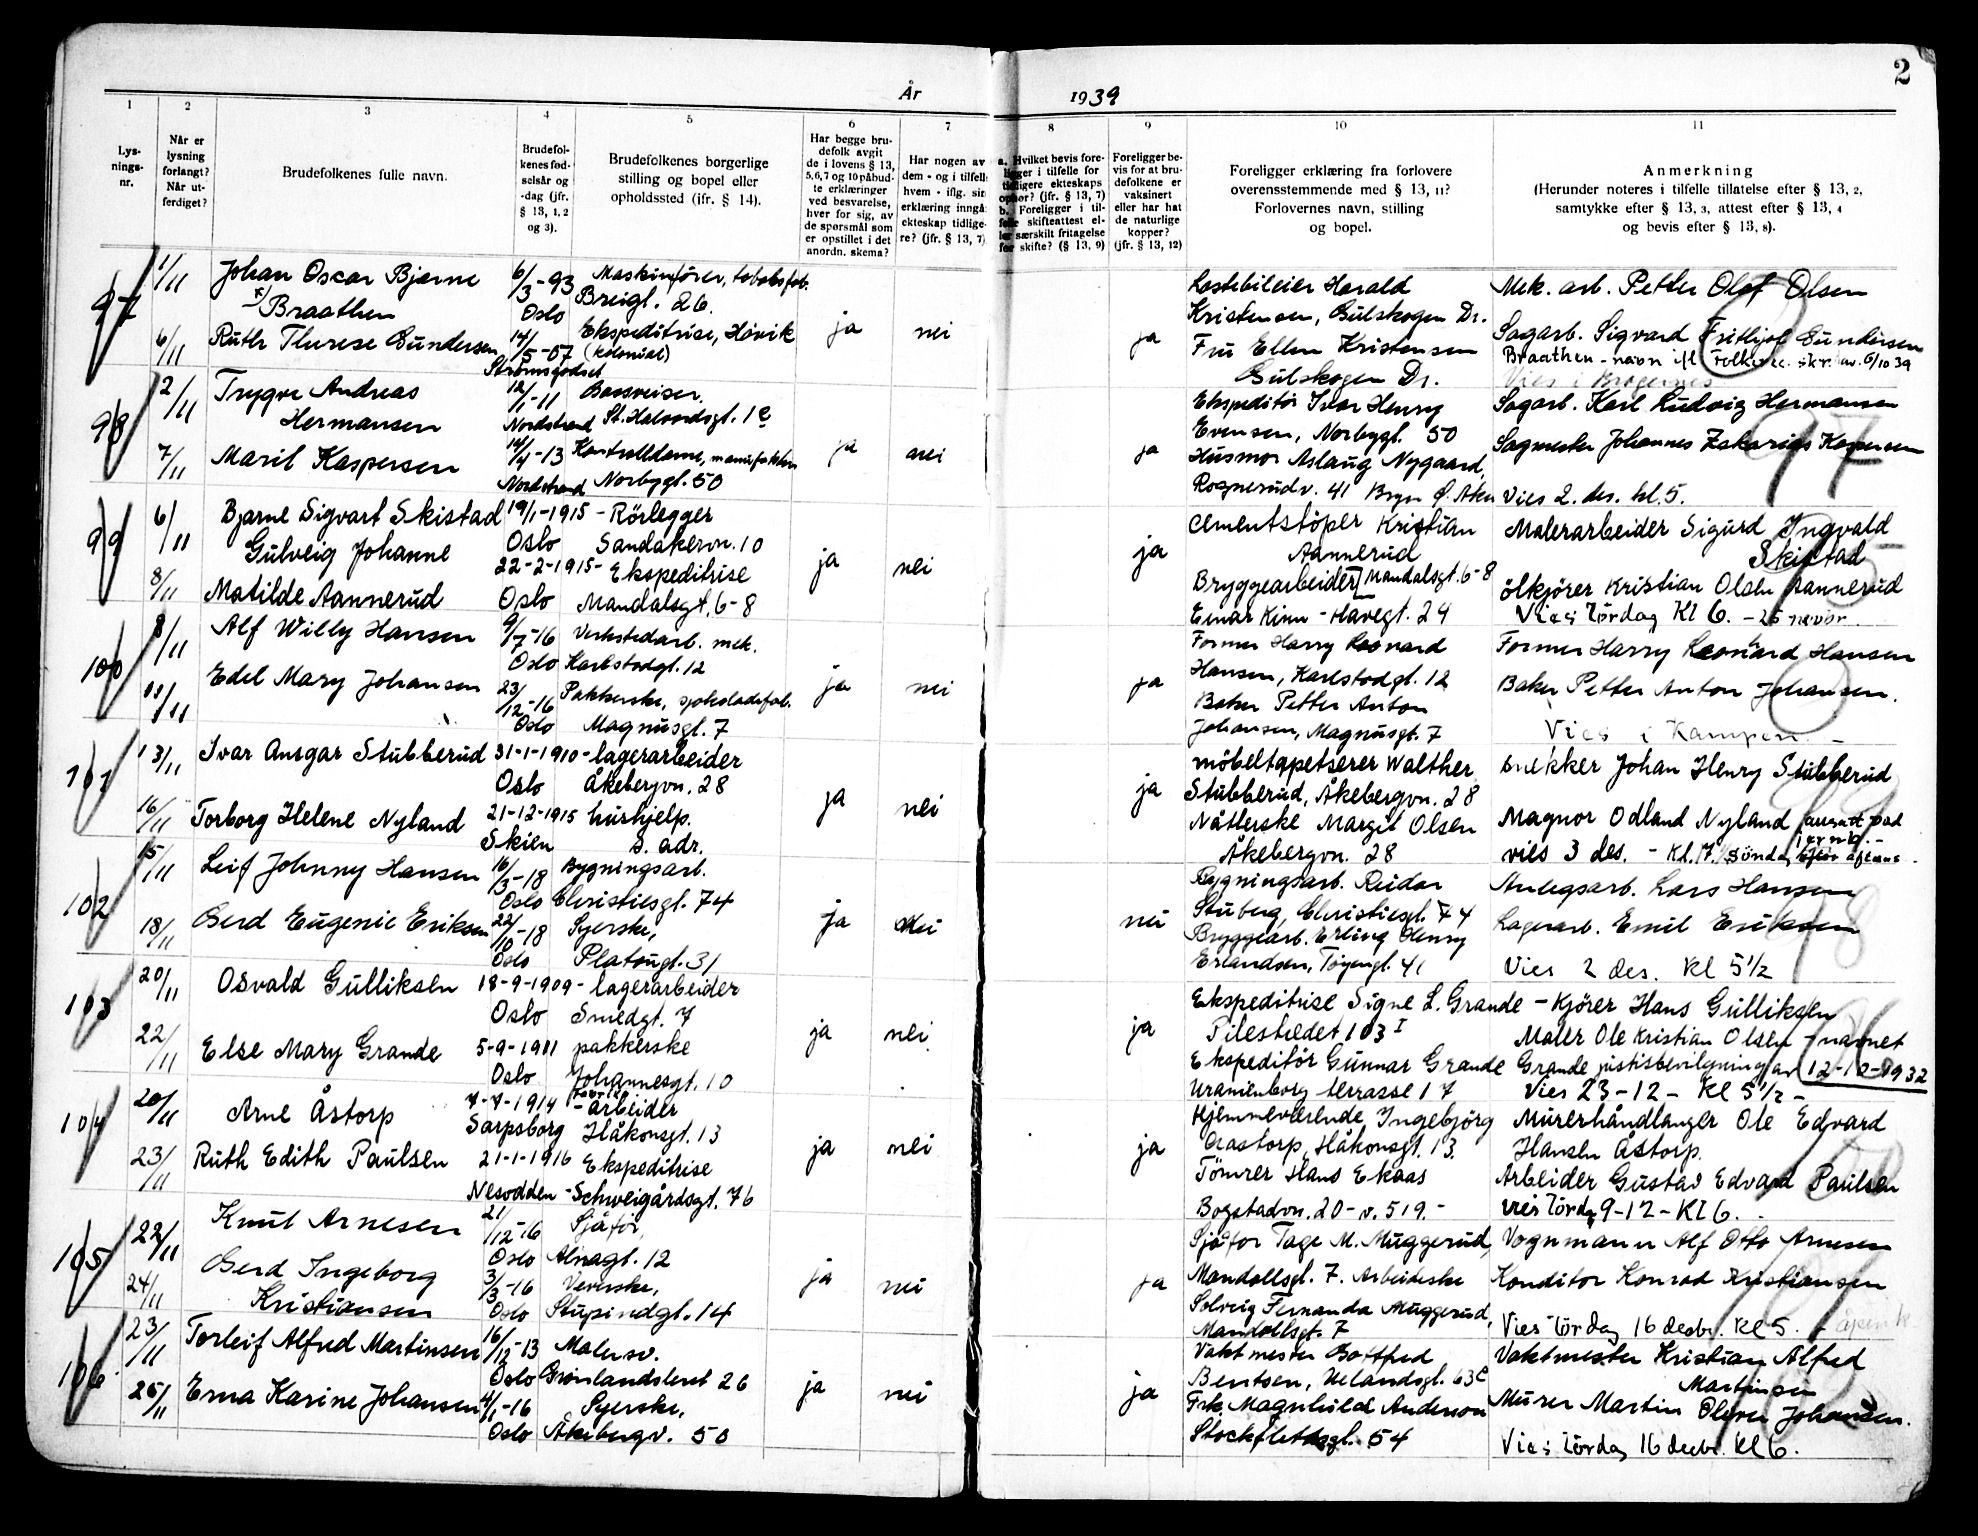 2
År 1939
1
2
3
4
5
6
7
8
9
10
11
Lys-
nings-
nr.
Når er
lysning
forlangt?
Når ut-
ferdiget?
Brudefolkenes fulle navn.
Brudefol-
kenes fød-
selsår og
-dag (jfr.
§ 13, 1, 2
og 3).
Brudefolkenes borgerlige
stilling og bopel eller
opholdssted (jfr. § 14).
Har begge bru-
defolk avgit
de i lovens § 13,
5,6,7 og 10 påbud-
te erklæringer
ved besvarelse,
hver for sig, av
de spørsmål som
er opstillet i det
anordn. skema?
Har nogen av
dem - og i tilfelle
hvem - iflg. sin
erklæring inngå
ekteskap tidlige-
re? (jfr. § 13, 7)
a. Hvilket bevis fore-
ligger i tilfelle for
tidligere ekteskaps
ophør? (jfr. § 13, 7)
b. Foreligger i til-
felle skifteattest el-
ler særskilt fritagelse
for skifte? (§ 13, 9)
Foreligger be-
vis for at bru-
defolkene er
vaksinert
eller har hat
de naturlige
kopper?
(jfr. § 13, 12)
Foreligger erklæring fra forlovere
overensstemmende med § 13, 11?
Forlovernes navn, stilling
og bopel.
Anmerkning
(Herunder noteres i tilfelle tillatelse efter § 13, 2,
samtykke efter § 13, 3, attest efter § 13, 4
og bevis efter § 13, 8).
97
1/11
6/11
Johan Oscar Bjarne
x) Braathen
Ruth Therese Gundersen
6/3-93
Oslo
14/5-07
Strømsgodset
Maskinfører, tobaksfab.
Breigt. 26.
Ekspeditrise, Høvik
(kolonial)
ja
nei
ja
Lastebileier Harald
Kristensen, Gulskogen Dr.
Fru Ellen Kristensen
Gulskogen Dr.
Mek. arb. Petter Olaf Olsen
Sagarb. Sigvard Fritljof Gundersen
Braathen - navn ifl Folkereg. skr. av. 6/10 39
Vies i Bragernes
98
2/11
7/11
Trygve Andreas
Hermansen
Maril Kaspersen
12/1-11
Nordstrand
14/4-13
Nordstrand
St. Halvardsgt. 1 e
Kontrolldame,
Norbygt. 50
ja
nei
ja
Ekspeditør Ivar Henry
Evensen, Norbygt. 50
Husmor Aslaug Nygaard,
Rognerudv. 41 Bryn Ø. Aker
Sagarb. Karl Ludvig Hermansen
Sagmester Johannes Zakarias Kaspersen
Vies 2. des. kl. 5.
99
6/11
8/11
Bjarne Sigvart Skistad
Gulveig Johanne
Matilde Aannerud
19/1-1915 - Rörlegger
Oslo Sandakervn. 10
22-2-1915 - Ekspeditrise
Oslo Mandalsgt. 6-8
ja
nei
ja
Cementstöper Kristian
Aannerud
Bryggearbeider [Mandalsgt. 6-8
Einar Kinn - Havegt. 29
Malerarbeider Sigurd Ingvald
Skistad
ölkjörer Kristian Olsen Aannerud
Vies lördag Kl 6. - 25 novbr.
100
8/11
Alf Willy Hansen
Edel Mary Johansen
9/7-16
Oslo
23/12-16
Oslo
Verkstedarb. mek.
Karlstadgt. 12
Pakkerske, sjokoladefab.
Magnusgt. 7
ja
nei
ja
Former Harry Leonard
Hansen, Karlstadgt. 12
Baker Petter Anton
Johansen, Magnusgt. 7
Former Harry Leonard Hansen
Baker Petter Anton Johansen.
Vies i Kampen. -
101
13/11
16/11
Ivar Ansgar Stubberud
Torborg Helene Nyland
31-1-1910 - lagerarbeider
Oslo Åkebergvn. 28
21-12-1915 hushjelp.
Skien s. adr.
ja
nei
ja
möbeltapetserer Walther
Stubberud, Åkebergvn. 28
Nåtlerske Margit Olsen
Åkebergvn. 28
snekker Johan Henry Stubberud
Magnor Odland Nyland
vies 3 des. - Kl. 17. söndag
102
15/11
18/11
Leif Johnny Hansen
Gerd Eugenie Eriksen
16/3-18
Oslo
22/10-18
Oslo
Bygningsarb.
Christiesgt. 74
Syerske,
Platougt. 31
ja
nei
nei
Bygningsarb. Reidar
Stuberg, Christiesgt. 74
Bryggearb. Erling Henry
Erlandsen, Tøyengt. 41
Anlegsarb. Lars Hansen
Lagerarb. Emil Eriksen
Vies 2 des. Kl 5 1/2
103
20/11
22/11
Osvald Gulliksen
Else Mary Grande
18-9-1909 - lagerarbeider
Oslo Smedgt. 7
5-9-1911 pakkerske
Oslo Johannesgt. 10
ja
nei
ja
Ekspeditrise Signe L. Grande
Pilestredet 103 I
Ekspeditör Gunnar Grande
Uranienborg terrasse 17
- Kjörer Hans Gulliksen
Maler Ole Kristian Olsen - navnet
Grande justisbevilgning av 12-12-1932
Vies 23-12 - Kl 5 1/2 -
104
20/11
23/11
Arne Åstorp
Ruth Edith Paulsen
7-7-1914 - arbeider
Sarpsborg Håkonsgt. 13
21-1-1916 Ekspeditrise
Nesodden - Schweigårdsgt. 76
ja
nei
ja
Hjemmeværende Ingebjörg
Aastorp, Håkonsgt. 13.
Tömrer Hans Ekaas
Bogstadvn. 20 - v. 519. -
Murerhåndlanger Ole Edvard
Hansen Åstorp.
Arbeider Gustav Edvard Paulsen
vies lördag 9-12 - Kl 6.
105
22/11
24/11
Knut Arnesen
Gerd Ingeborg
Kristiansen
21/12-16
Oslo
3/3-16
Oslo
Sjåfør,
Alnagt. 12
Veverske,
Stupindgt. 14
ja
nei
ja
Sjåfør Tage M. Muggerud,
Mandallsgt. 7. Arbeiderske
Solveig Fernanda Muggerud,
Mandallsgt. 7
Vognmann Alf Otto Arnesen
Konditor Konrad Kristiansen
Vies lördag 16 desbr. Kl 5.
106
23/11
25/11
Torleif Alfred Martinsen
Erna Karine Johansen
16/12-13
Oslo
4/1-16
Oslo
Malersv.
Grønlandsleret 26
Syerske,
Åkebergv. 50
ja
nei
ja
Vaktmester Gottfred
Bentsen, Uelandsgt. 63 c
Frk. Magnhild Anderson
Stockfletsgt. 54
Vaktmester Kristian Alfred
Martinsen
Murer Martin Oliver Johansen.
Vies lördag 16 desbr. Kl 6.